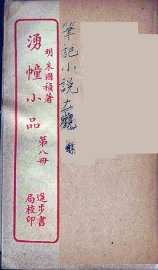 明朱國禎著
湧幢小品
第八冊
進步書
局校印
筆記小說